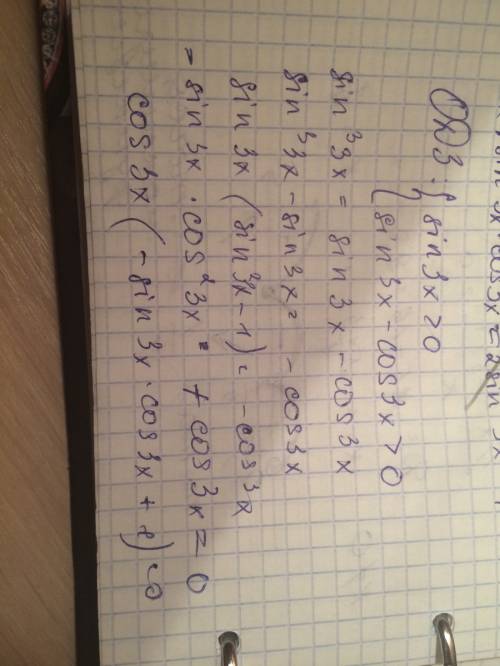 ОДЗ: { sin3x > 0
{ sin3x - cos3x > 0
sin³3x = sin3x - cos3x
sin³3x - sin3x = - cos3x
sin3x (sin²3x - 1) = - cos3x
- sin3x · cos²3x + cos3x = 0
cos3x (- sin3x · cos3x + 1) = 0